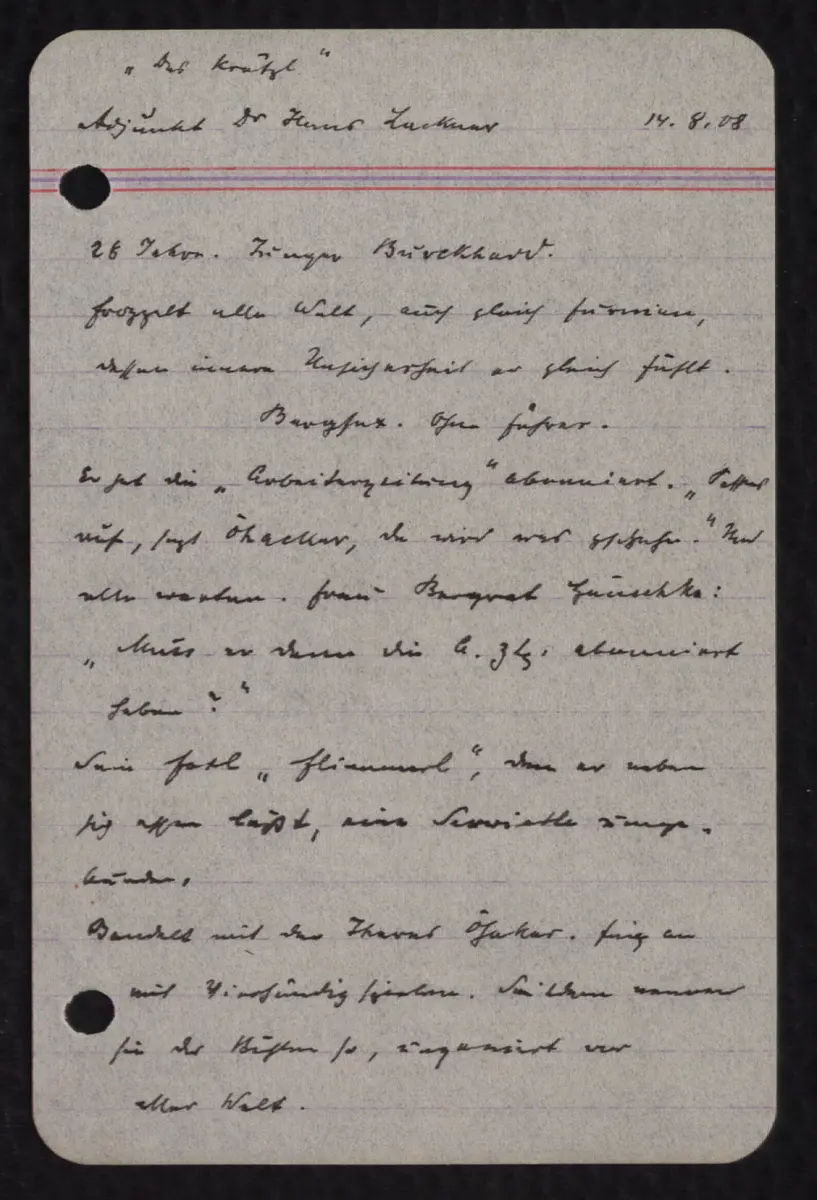 „Das Krätzl"
Adjunkt Dr Hans Lackner 14. 8. 08
28 Jahre. Junger Burckhard.
frozzelt alle Welt, auch gleich
dessen innere Unsicherheit er gleich fühlt.
Bergfex. Ohne Führer.
Er hat die „Arbeiterzeitung" abonniert. „Passts
auf, sagt Öhacker, da wird was gschehn." Und
alle warten. Frau Bergrat Hauschka:
„Muss er denn die A. Ztg. abonniert
haben?"
Sein Foxl „Flimmerl", den er neben
sich essen läßt, eine Serviette umge-
bunden.
Bandelt mit der Theres Öhaker. Fing an
mit Vierhändig spielen. Seitdem nennen
sie die so, ungeniert vor
aller Welt.